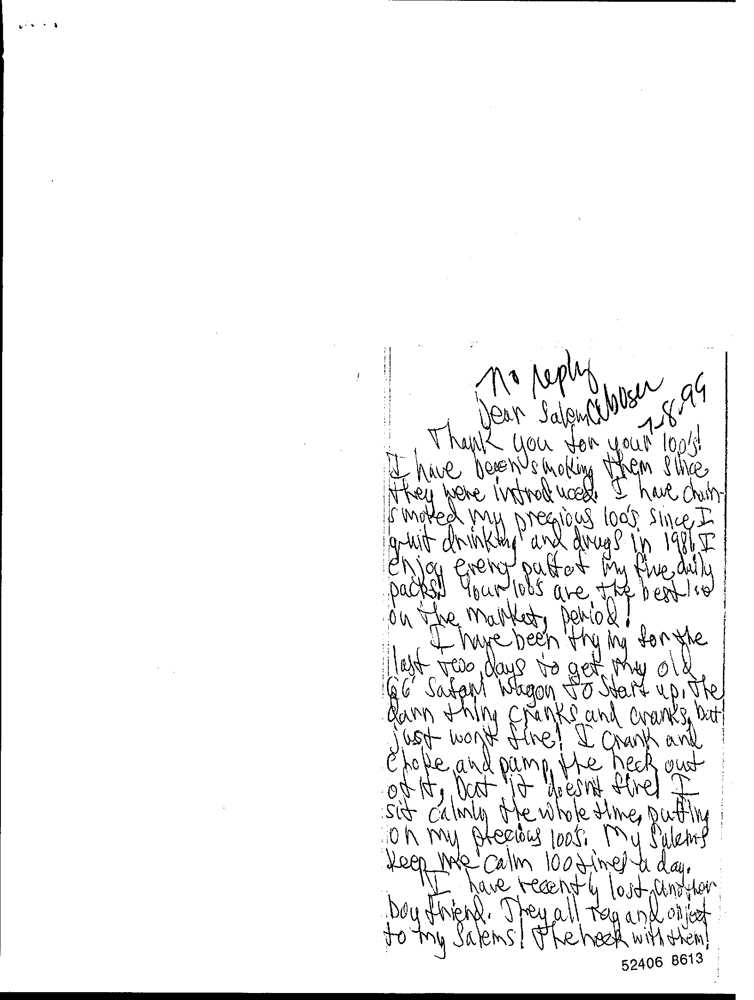 No reply
Dear Salem
7-8-99
Thank you for your 100's!
I have been smoking them since
they were introduced. I have chain
smoked my precious 100s since I
quit drinking and drugs in 1981. I
enjoy every puff of my five daily
packs!! Your 100s are the best
on the market, period!
I have been trying for the
last two days to get my old
66 Safari Wagon to start up. The
darn thing cranks and cranks, but
just wont fire! I crank and
choke and pump the heck out
of it, but it doesnt fire! I
sit calmly the whole time, puffing
on my precious 100s. My Salems
keep me calm 100 times a day.
I have recently lost another
boyfriend. They all rag and object
to my Salems! The heck with them!
52406 8613